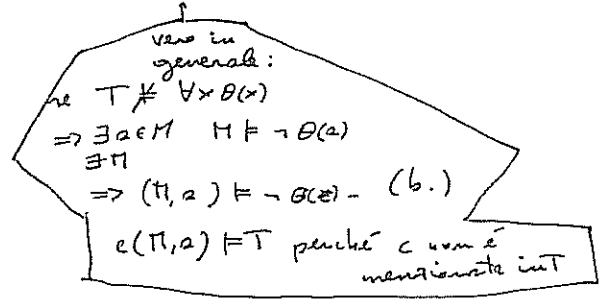 vero in
generale:
se T ⊭ ∀x θ(x)
=> ∃a∈M M ⊨ ¬θ(a)
∃M
=> (M, a) ⊨ ¬θ(c) - (b.)
e (M, a) ⊨ T perché c non è
menzionata in T